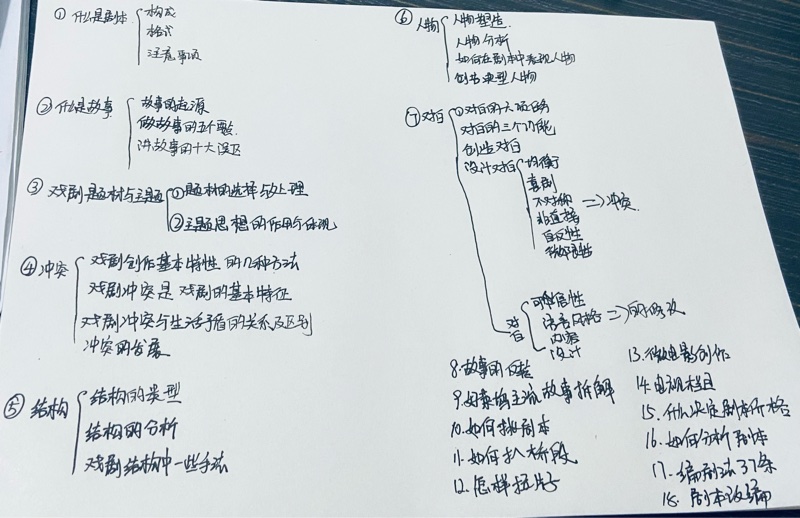 ① 什么是剧本
构成
格式
注意事项
② 什么是故事
故事的起源
做故事的五个要点
讲故事的十大误区
③ 戏剧题材与主题
①题材的选择与处理
②主题思想的作用与体现
④ 冲突
戏剧创作基本特性的几种方法
戏剧冲突是戏剧的基本特征
戏剧冲突与生活矛盾的关系及区别
冲突的发展
⑤ 结构
结构的类型
结构的分析
戏剧结构中一些手法
⑥ 人物
人物塑造
人物分析
如何在剧本中表现人物
创书典型人物
⑦ 对白
①对白的六项任务
对白的三个功能
创造对白
设计对白
均衡
喜剧
不对称
非直接
自反性
微妙性
=> 冲突.
对白
可解信性
语言风格
内容
设计
=>
8.故事的
9.好莱坞主流故事拆解
10.如何推剧本
11.如何扒桥段
12.怎样拉片子
13.微电影创作
14.电视栏目
15.什么决定剧本价格
16.如何分析剧本
17.编剧法37条
18.剧本改编